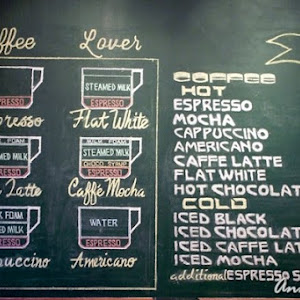 ffee Lover
STEAMED MILK
ESPRESSO
ESPRESSO
presso Flat White
MILK FOAM
STEAMED MILK
ESPRESSO
MILK FOAM
STEAMED MILK
CHOCO SYRUP
ESPRESSO
Latte Caffe Mocha
K FOAM
MED MILK
ESPRESSO
WATER
ESPRESSO
puccino Americano
COFFEE
HOT
ESPRESSO
MOCHA
CAPPUCCINO
AMERICANO
CAFFE LATTE
FLAT WHITE
HOT CHOCOLAT
COLD
ICED BLACK
ICED CHOCOLAT
ICED CAFFE LAT
ICED MOCHA
additional ESPRESSO S